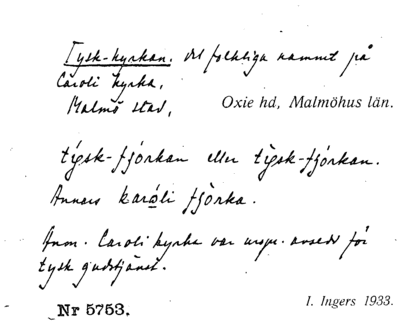 Tysk-kyrkan. det folkliga namnet på
Caroli kyrka,
Malmö stad, Oxie hd, Malmöhus län.
tỳsk-fjórkan eller tỳsk-fjórkan.
Annars karóli fjòrka.
Anm. Caroli kyrka var urspr. avsedd för
tysk gudstjänst.
Nr 5753. I. Ingers 1933.